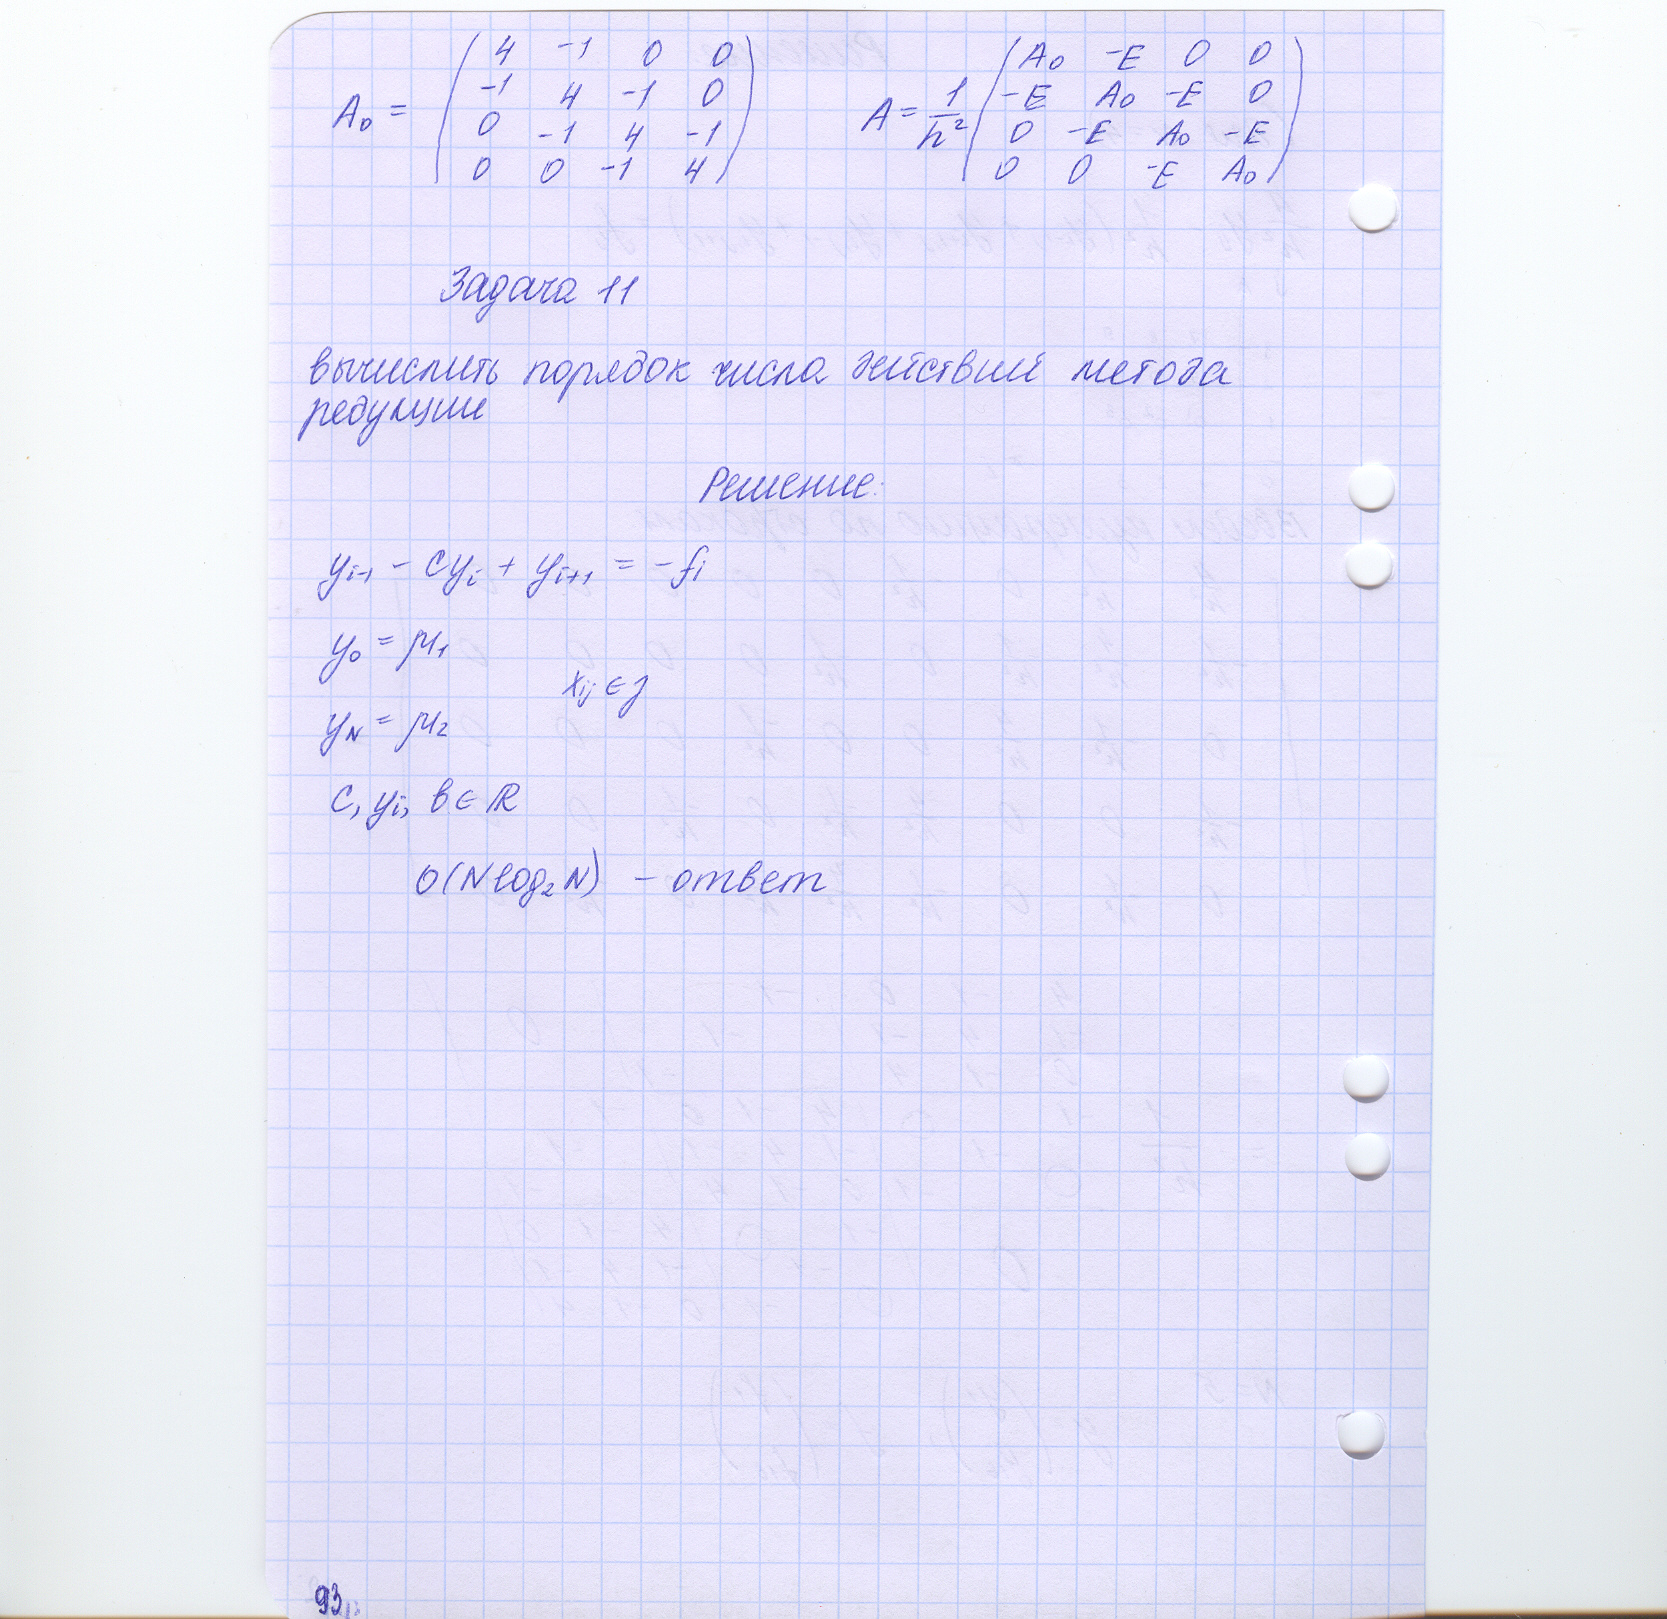 A₀ = ( 4 -1 0 0 A = 1/h² ( A₀ -E 0 0
-1 4 -1 0 -E A₀ -E 0
0 -1 4 -1 0 -E A₀ -E
0 0 -1 4 ) 0 0 -E A₀ )
Задача 11
вычислить порядок числа действий метода
редукции
Решение:
yᵢ₋₁ - cyᵢ + yᵢ₊₁ = -fᵢ
y₀ = μ₁
xᵢⱼ ∈ γ
y_N = μ₂
c, yᵢ, b ∈ ℝ
O(N log₂ N) - ответ
93